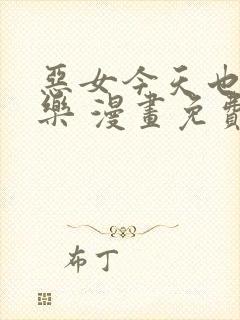 惡女今天也
樂 漫畫免費
布丁